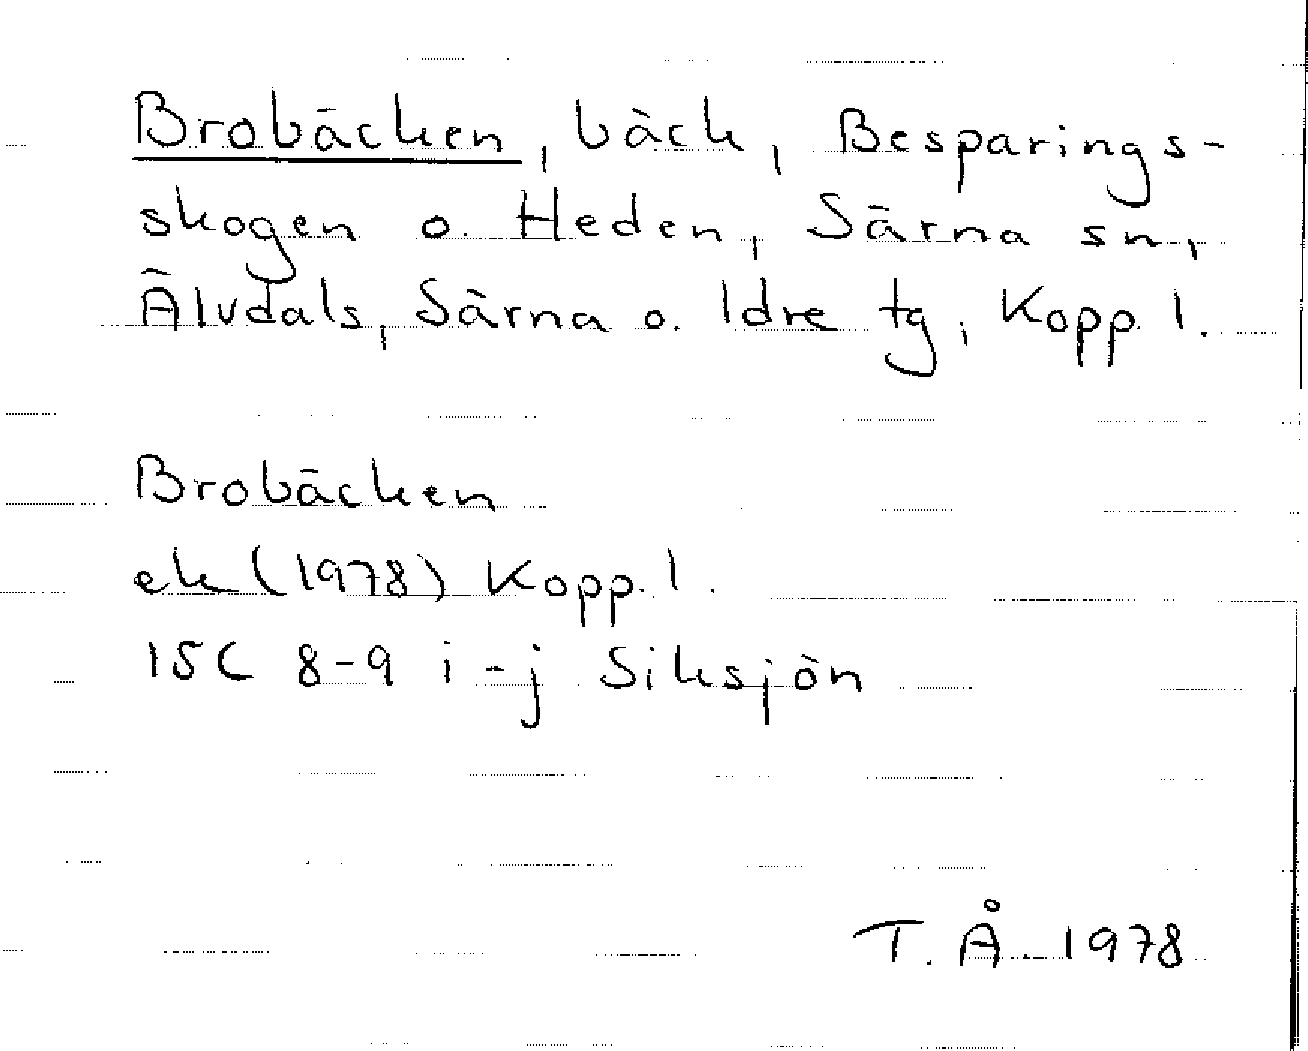 Brobäcken, bäck, Besparings-
skogen o. Heden, Särna sn,
Älvdals, Särna o. Idre tg, Kopp. l.
Brobäcken
ek (1978) Kopp. l.
15C 8-9 i-j Siksjön
T. Å. 1978